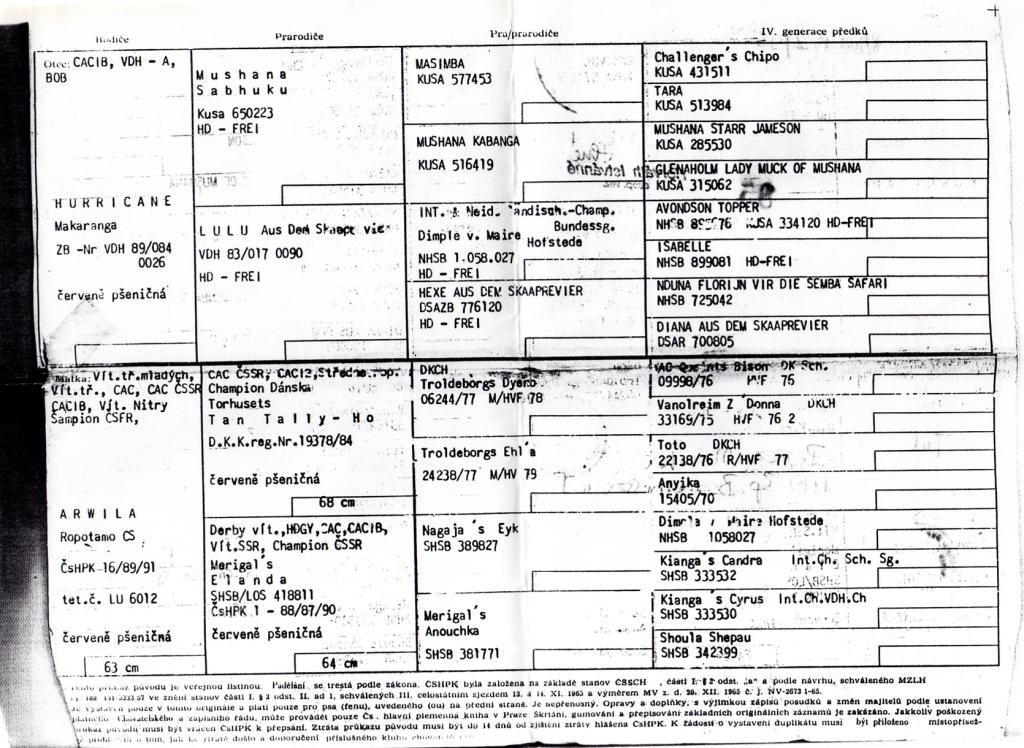 Rodiče
Prarodiče
Pra/prarodiče
IV. generace předků
Otec: CACIB, VDH - A,
BOB
HURRICANE
Makaranga
ZB -Nr VDH 89/084
0026
červeně pšeničná
Mushana
Sabhuku
Kusa 650223
HD - FREI
LULU Aus Dem
VDH 83/017 0090
HD - FREI
MASIMBA
KUSA 577453
MUSHANA KABANGA
KUSA 516419
INT. & Neid.
Bundessg.
Dimple v. Maire
Hofstede
NHSB 1.058.027
HD - FREI
HEXE AUS DEM SKAAPREVIER
DSAZB 776120
HD - FREI
Challenger's Chipo
KUSA 431511
TARA
KUSA 513984
MUSHANA STARR JAMESON
KUSA 285530
GLENAHOLM LADY MUCK OF MUSHANA
KUSA 315062
AVONDSON TOPPER
NHSB KUSA 334120 HD-FREI
ISABELLE
NHSB 899081 HD-FREI
NDUNA FLORIJN VIR DIE SEMBA SAFARI
NHSB 725042
DIANA AUS DEM SKAAPREVIER
DSAR 700805
Matka: Vít.tř.mladých,
Vít.tř., CAC, CAC ČSSR
CACIB, Vít. Nitry
Šampion ČSFR,
ARWILA
Ropotamo CS
ČsHPK 16/89/91
tet.č. LU 6012
červeně pšeničná
63 cm
CAC ČSSR,
Champion Dánska
Torhusets
Tan Tally-Ho
D.K.K.reg.Nr.19378/84
červeně pšeničná
68 cm
Derby vít.,HDGY,CAC,CACIB,
Vít.SSR, Champion ČSSR
Merigal's
Elanda
SHSB/LOS 418811
ČsHPK 1 - 88/87/90
červeně pšeničná
64 cm
DKCH
Troldeborgs Dyero
06244/77 M/HVF 78
Troldeborgs Ehl'a
24238/77 M/HV 79
Nagaja's Eyk
SHSB 389827
Merigal's
Anouchka
SHSB 381771
Bison DK Sch.
09998/76 75
Vanolreim Z'Donna DKCH
33169/75 H/F 76 2
Toto DKCH
22138/76 R/HVF 77
Anyika
15405/70
Hofstede
NHSB 1058027
Kianga's Candra Int.Ch. Sch. Sg.
SHSB 333532
Kianga's Cyrus Int.CH.VDH.Ch
SHSB 333530
Shoula Shepau
SHSB 342399
Tento průkaz původu je veřejnou listinou. Padělání se trestá podle zákona. ČSHPK byla založena na základě stanov ČSSCH, části odst. "a" a podle návrhu, schváleného MZLH
ve znění stanov části I. § 3 odst. II. ad 1, schválených III. celostátním sjezdem 13. a 14. XI. 1965 a výměrem MV z d. 20. XII. 1965 č. j. NV-2673 1-65.
Je vystaven pouze v tomto originále a platí pouze pro psa (fenu), uvedeného (ou) na přední straně. Je nepřenosný. Opravy a doplňky, s výjimkou zápisů posudků a změn majitelů podle ustanovení
Chovatelského a zápisního řádu, může provádět pouze Čs. hlavní plemenná kniha v Praze. Škrtání, gumování a přepisování základních originálních záznamů je zakázáno. Jakkoliv poškozený
průkaz původu musí být vrácen ČsHPK k přepsání. Ztráta průkazu původu musí být do 14 dnů od zjištění ztráty hlášena ČsHPK. K žádosti o vystavení duplikátu musí být přiloženo místopřísež-
o tom, jak ke ztrátě došlo a doporučení příslušného klubu